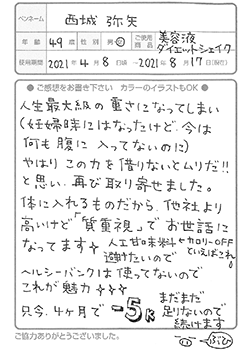 ペンネーム 西城 弥矢
年齢 49歳 性別 男・女 ご使用商品 美容液 ダイエットシェイク
使用期間 2021年4月8日〜2021年8月17日(現在)
●ご感想をお書き下さい カラーのイラストもOK●
人生最大級の重さになってしまい
(妊婦時にはなったけど、今は
何も腹に入ってないのに)
やはりこの力を借りないとムリだ!!
と思い、再び取り寄せました。
体に入れるものだから、他社より
高いけど「質重視」でお世話に
なってます 人工甘味料←カロリーOFF
避けたいので といえばこれ。
ヘルシーバンクは使ってないので
これが魅力
只今、4ヶ月で −5K まだまだ
足りないので
続けます
ご協力ありがとうございました。